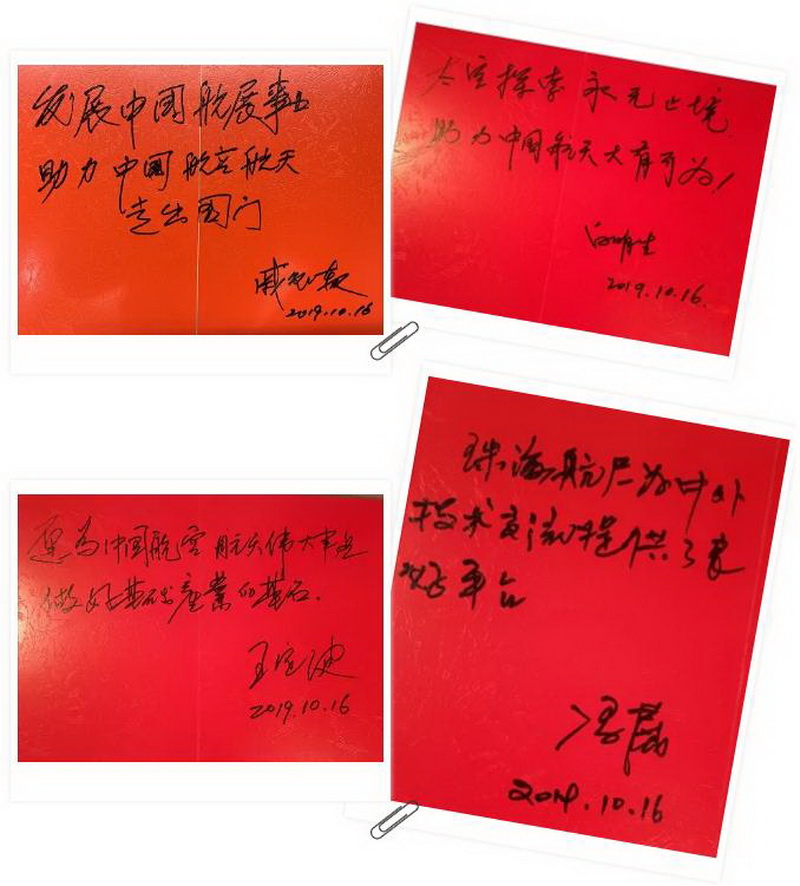 发展中国航展事业
助力中国航空航天
走出国门
2019.10.16
太空探索永无止境
助力中国航天大有可为!
白明生
2019.10.16.
愿为中国航空航天伟大事业
做好基础產業的基石.
王定
2019.10.16
珠海航展为中外
技术交流提供了良
好平台
2019.10.16